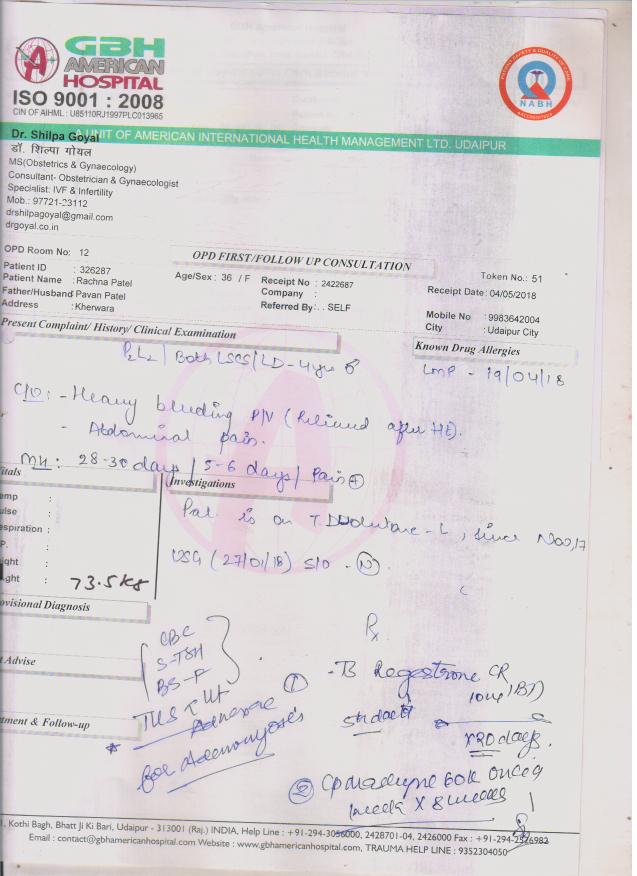 GBH
AMERICAN
HOSPITAL
ISO 9001 : 2008
CIN OF AIHML : U85110RJ1997PLC013965
NABH
A UNIT OF AMERICAN INTERNATIONAL HEALTH MANAGEMENT LTD. UDAIPUR
Dr. Shilpa Goyal
डॉ. शिल्पा गोयल
MS(Obstetrics & Gynaecology)
Consultant- Obstetrician & Gynaecologist
Specialist: IVF & Infertility
Mob.: 97721-23112
drshilpagoyal@gmail.com
drgoyal.co.in
OPD Room No: 12
OPD FIRST/FOLLOW UP CONSULTATION
Token No.: 51
Patient ID : 326287
Patient Name : Rachna Patel
Father/Husband Pavan Patel
Address : Kherwara
Age/Sex : 36 / F
Receipt No : 2422687
Company :
Referred By: . . SELF
Receipt Date: 04/05/2018
Mobile No : 9983642004
City : Udaipur City
Present Complaint/ History/ Clinical Examination
Known Drug Allergies
P2L2 / Both LSCS / LD - 4 yrs
LMP - 19/04/18
C/O : - Heavy bleeding P/V ( after ).
- Abdominal pain.
MH : 28-30 days / 5-6 days / Pain +
Investigations
Pat. is on T. , since Nov,17
USG (27/01/18) S/O - N
73.5 kg
CBC
S-TSH
Rx
Advise
TUS
for Adenomyosis
1 - TB Regestrone CR
10mg (BT)
5th day
x 20 days.
2 60K once a
week x 8 weeks
Kothi Bagh, Bhatt Ji Ki Bari, Udaipur - 313001 (Raj.) INDIA, Help Line : +91-294-3056000, 2428701-04, 2426000 Fax : +91-294-2526982
Email : contact@gbhamericanhospital.com Website : www.gbhamericanhospital.com, TRAUMA HELP LINE : 9352304050